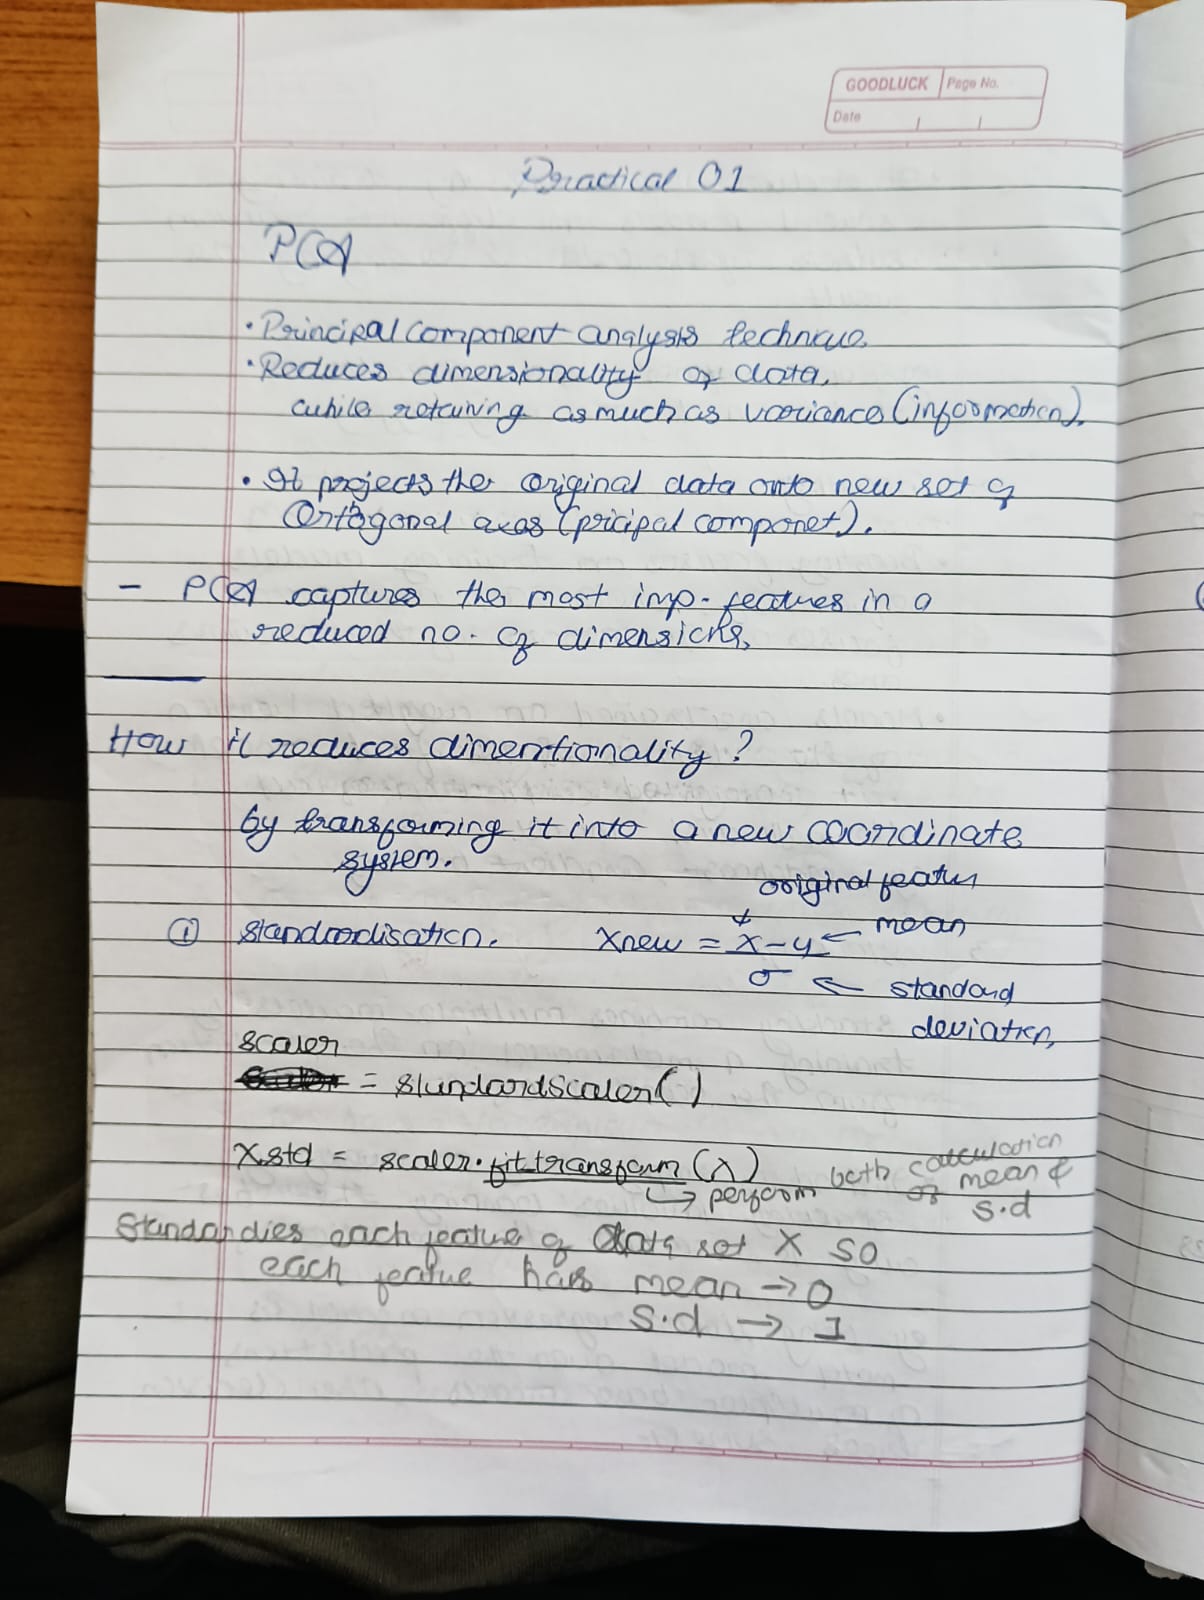 GOODLUCK Page No.
Date
Practical 01
PCA
• Principal component analysis technique.
• Reduces dimensionality of data,
while retaining as much as variance (information).
• It projects the original data onto new set of
Orthogonal axes (pricipal componet).
- PCA captures the most imp. features in a
reduced no. of dimensions,
How it reduces dimentionality ?
by transforming it into a new coordinate
system.
original featur
① standardisation. Xnew = x - y ← mean
σ ← standard
deviation,
scaler
= standardscaler()
X std = scaler.fit transform (X)
↳ perform both calculation
of mean &
s.d
Standardies each feature of data set X so
each featue has mean → 0
S.d → 1